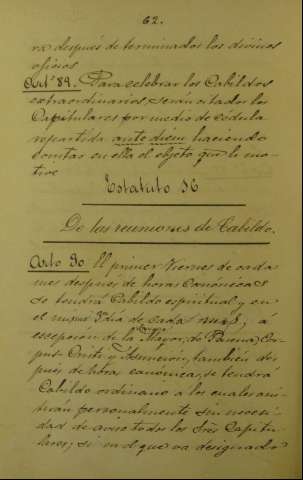 62.
ra después de terminados los divinos
oficios
Art° 89. Para celebrar los Cabildos
extraordinarios serán citados los
Capitulares por medio de cédula
repartida ante diem haciendo
constar en ella el objeto que le mo-
tive
Estatuto 16
De las reuniones de Cabildo.
Arto 90 El primer Viernes de cada
mes después de horas canónicas
se tendrá Cabildo espiritual y en
el mismo día de cada mes, á
escepción de la Mayor, de Pascua, Cor-
pus Cristi y Asunción, tambien des-
pués de horas canónicas, se tendrá
Cabildo ordinario a los cuales asis-
tirán personalmente sin necesi-
dad de aviso todos los Srēs Capitu-
lares; si en el que va designado